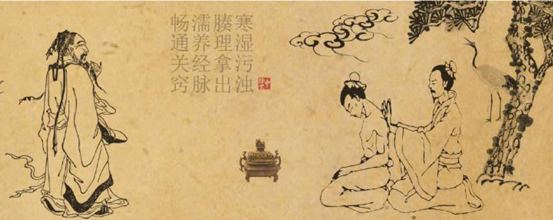 寒湿污浊
腠理拿出
濡养经脉
畅通关窍